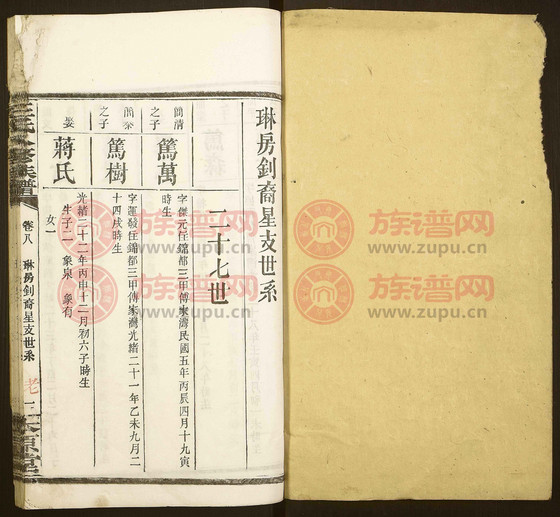 琳房釗裔星支世系
二十七世
簡清之子
篤萬
字僅元住錦都三甲傅家灣民國五年丙辰四月十九寅時生
簡泰之子
篤樹
字運發住錦都三甲傅家灣光緒二十一年乙未九月二十四戌時生
娶
蔣氏
光緒二十二年丙申十二月初六子時生
生子二 象泉 象有
女一
族譜
卷八 琳房釗裔星支世系
老
族谱网
www.zupu.cn
族谱网
www.zupu.cn
族谱网
www.zupu.cn
族谱网
www.zupu.cn